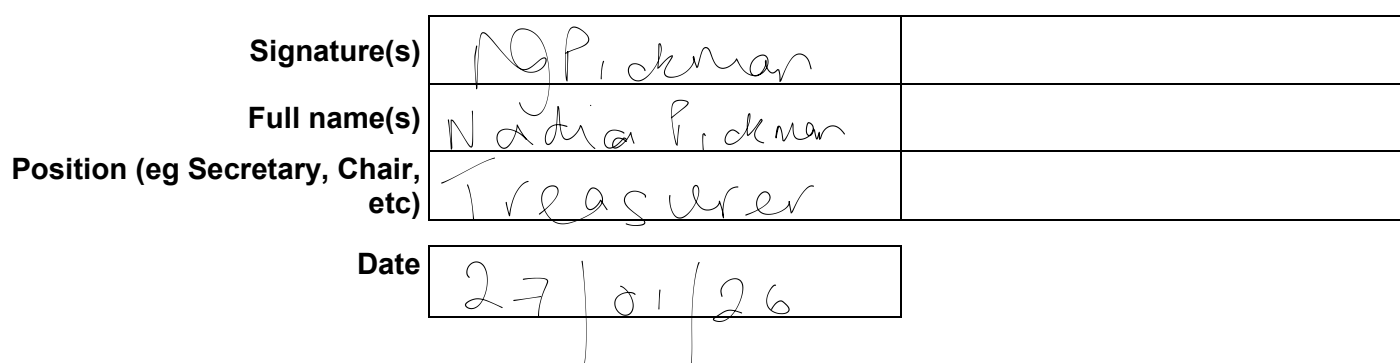 Signature(s) NGPickman
Full name(s) Nadia Pickman
Position (eg Secretary, Chair,
etc) Treasurer
Date 27/01/26